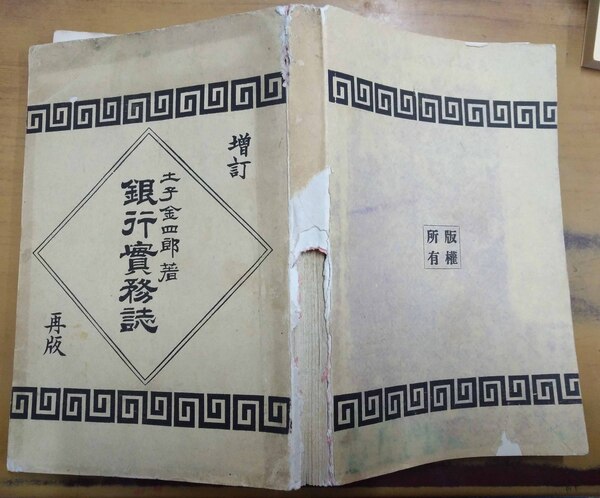 増訂
土子金四郎著
銀行實務誌
再版
版權
所有